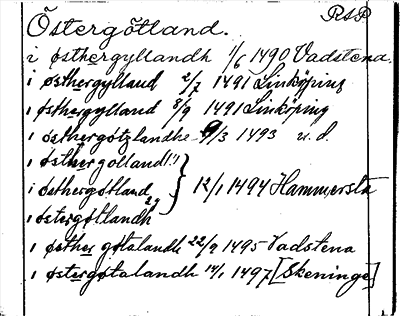 RSP
Östergötland.
i østhergyllandh 1/6 1490 Vadstena.
i østhergylland 2/7 1491 Linköping
i østhergylland 8/9 1491 Linköping
i østhergøtzlandhe 9/3 1493 u.d.
i østhergolland(!)
i østhergøtland 2g } 12/1 1494 Hammersta
i østergøtlandh
i østher gøtalandh 22/9 1495 Vadstena
i østergøtalandh 14/1 1497 [Skeninge]